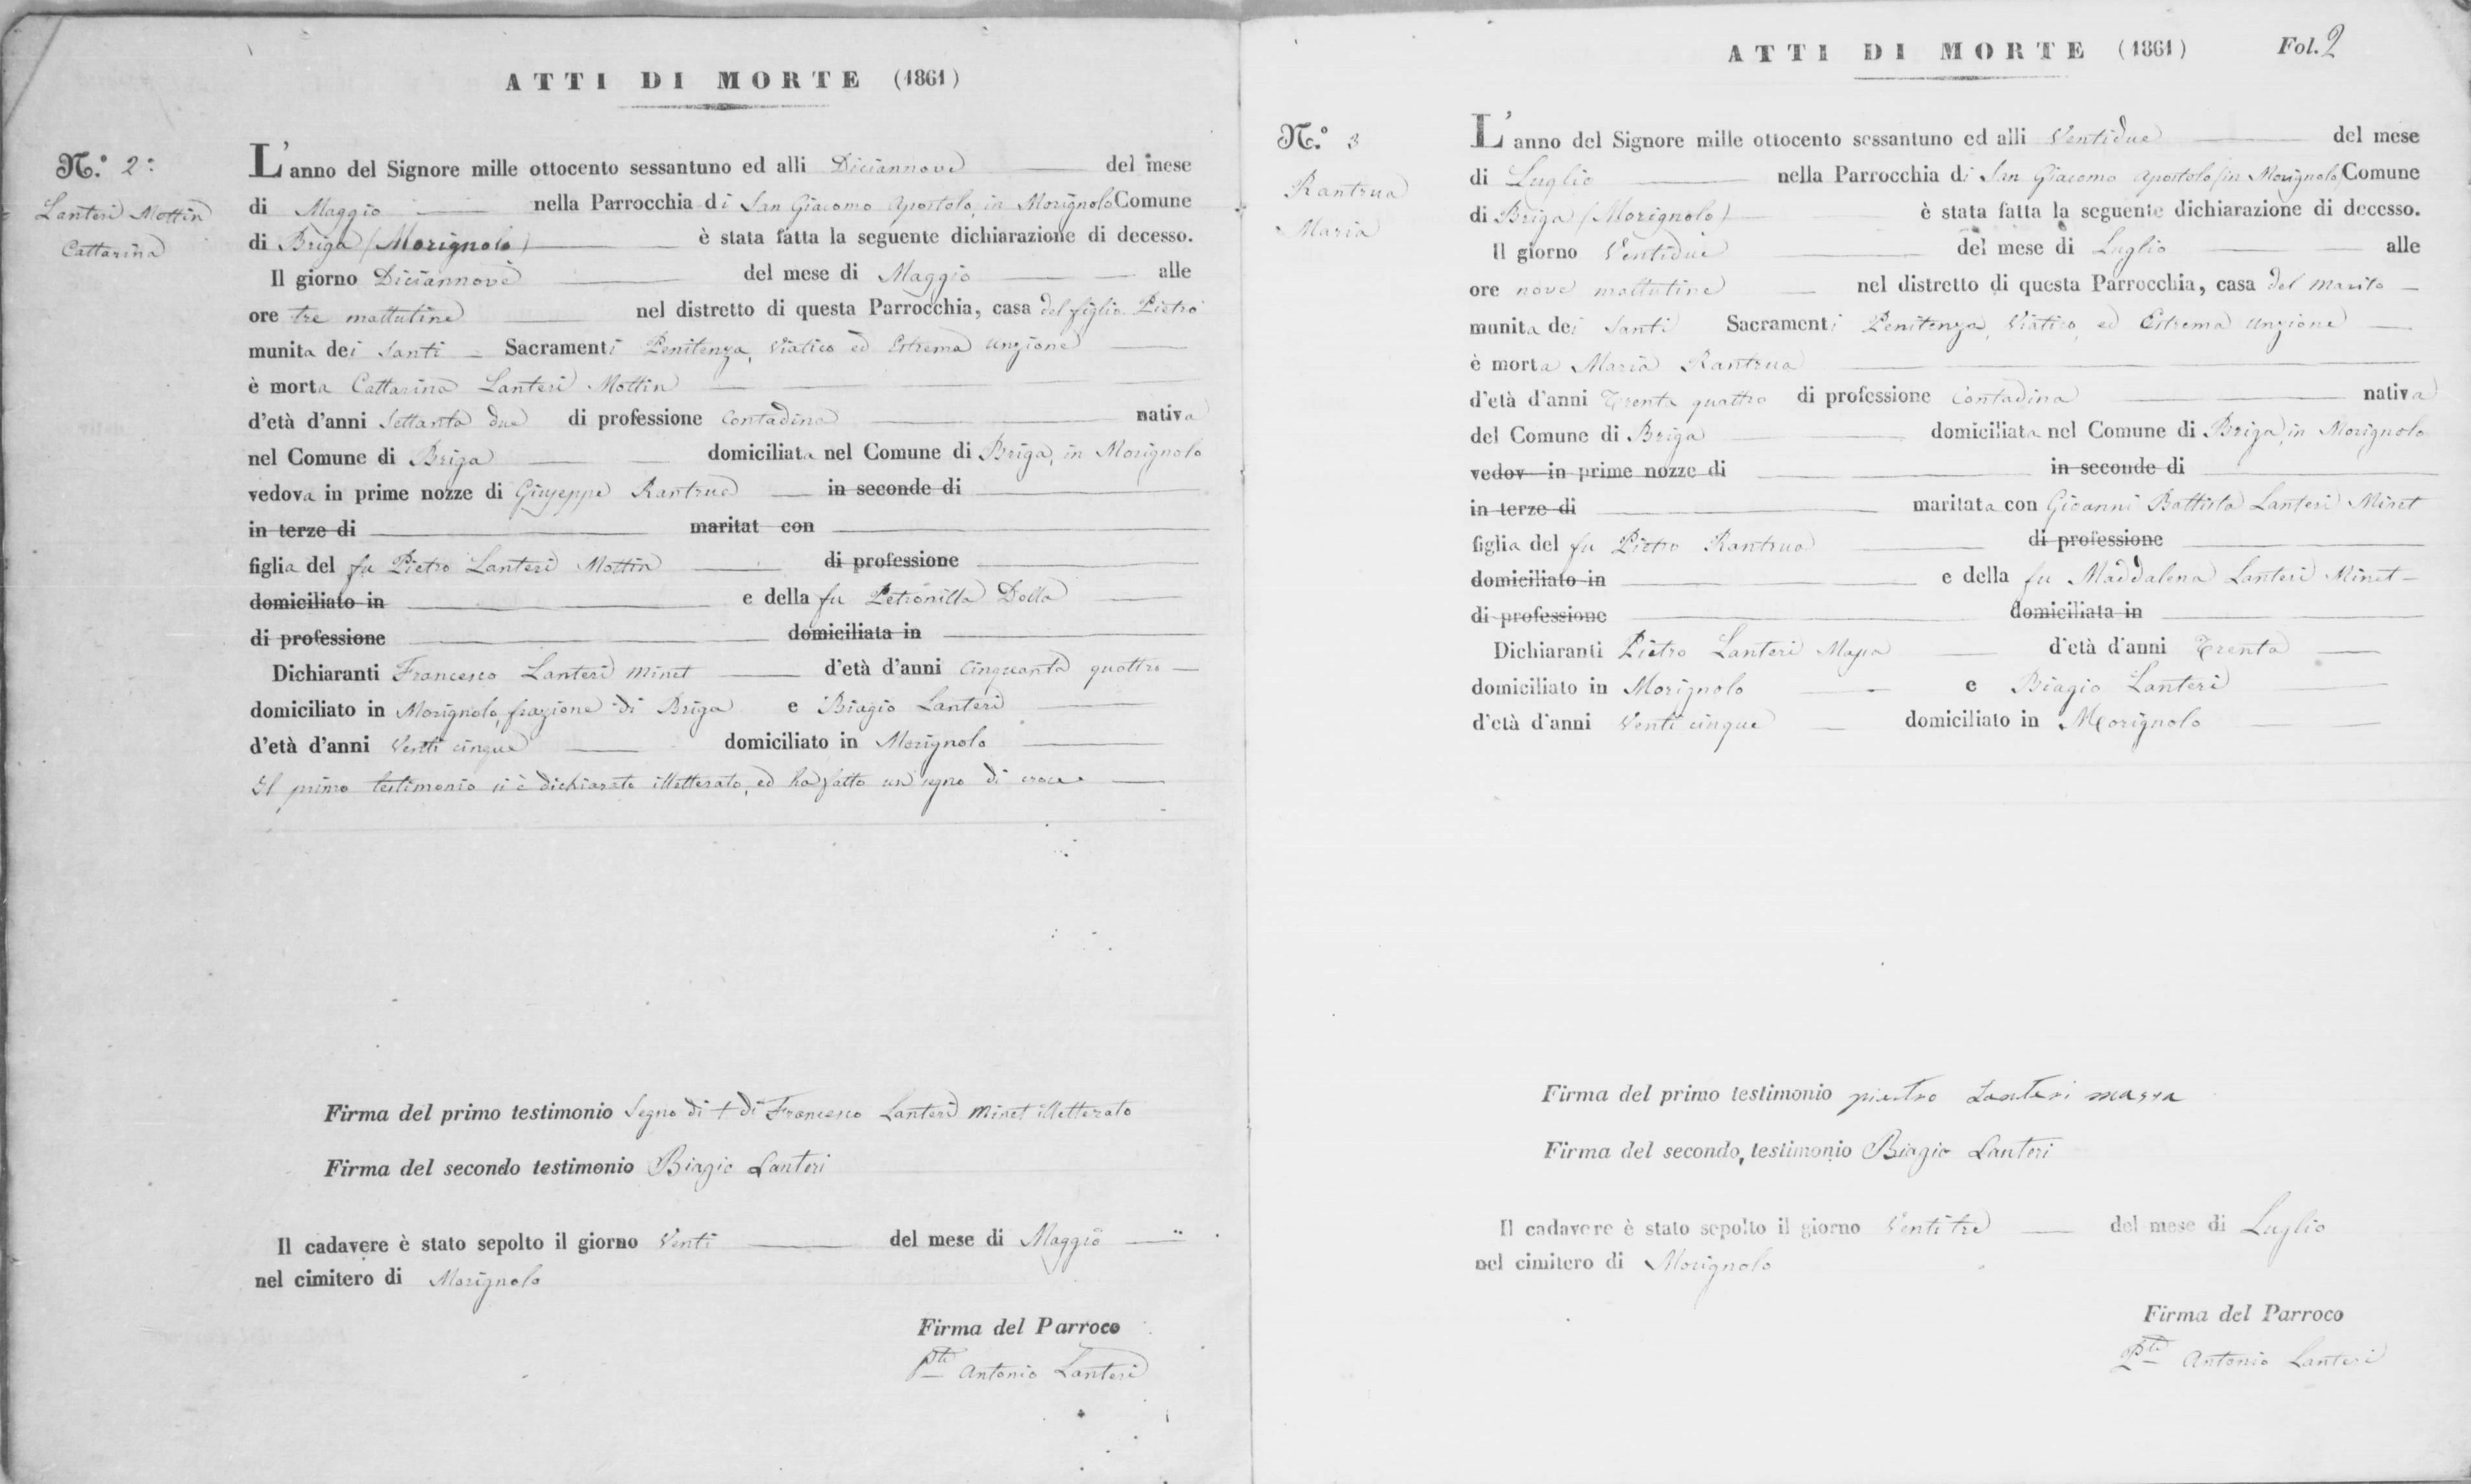 ATTI DI MORTE (1861)
N.º 2:
Lanteri Mottin
Cattarina
L'anno del Signore mille ottocento sessantuno ed alli Diciannove del mese
di Maggio nella Parrocchia di San Giacomo Apostolo, in Morignolo Comune
di Briga (Morignolo) è stata fatta la seguente dichiarazione di decesso.
Il giorno Diciannove del mese di Maggio alle
ore tre mattutine nel distretto di questa Parrocchia, casa del figlio Pietro
munita dei Santi Sacramenti Penitenza, Viatico ed Estrema Unzione
è morta Cattarina Lanteri Mottin
d'età d'anni Settanta due di professione Contadina nativa
nel Comune di Briga domiciliata nel Comune di Briga, in Morignolo
vedova in prime nozze di Giuseppe Rantrua in seconde di
in terze di maritat con
figlia del fu Pietro Lanteri Mottin di professione
domiciliato in e della fu Petronilla Dolla
di professione domiciliata in
Dichiaranti Francesco Lanteri Minet d'età d'anni Cinquanta quattro
domiciliato in Morignolo, frazione di Briga e Biagio Lanteri
d'età d'anni Venti cinque domiciliato in Morignolo
Il primo testimonio si è dichiarato illetterato, ed ha fatto un segno di croce.
Firma del primo testimonio Segno di + di Francesco Lanteri Minet illetterato
Firma del secondo testimonio Biagio Lanteri
Il cadavere è stato sepolto il giorno Venti del mese di Maggio
nel cimitero di Morignolo
Firma del Parroco
Pte Antonio Lanteri
ATTI DI MORTE (1861) Fol. 2
N.º 3
Rantrua
Maria
L'anno del Signore mille ottocento sessantuno ed alli Ventidue del mese
di Luglio nella Parrocchia di San Giacomo Apostolo (in Morignolo) Comune
di Briga (Morignolo) è stata fatta la seguente dichiarazione di decesso.
Il giorno Ventidue del mese di Luglio alle
ore nove mattutine nel distretto di questa Parrocchia, casa del marito
munita dei Santi Sacramenti Penitenza, Viatico, ed Estrema Unzione
è morta Maria Rantrua
d'età d'anni Trenta quattro di professione Contadina nativa
del Comune di Briga domiciliata nel Comune di Briga, in Morignolo
vedov in prime nozze di in seconde di
in terze di maritata con Gioanni Battista Lanteri Minet
figlia del fu Pietro Rantrua di professione
domiciliato in e della fu Maddalena Lanteri Minet
di professione domiciliata in
Dichiaranti Pietro Lanteri Massa d'età d'anni Trenta
domiciliato in Morignolo e Biagio Lanteri
d'età d'anni Venti cinque domiciliato in Morignolo
Firma del primo testimonio pietro Lanteri massa
Firma del secondo, testimonio Biagio Lanteri
Il cadavere è stato sepolto il giorno Venti tre del mese di Luglio
nel cimitero di Morignolo
Firma del Parroco
Pte Antonio Lanteri